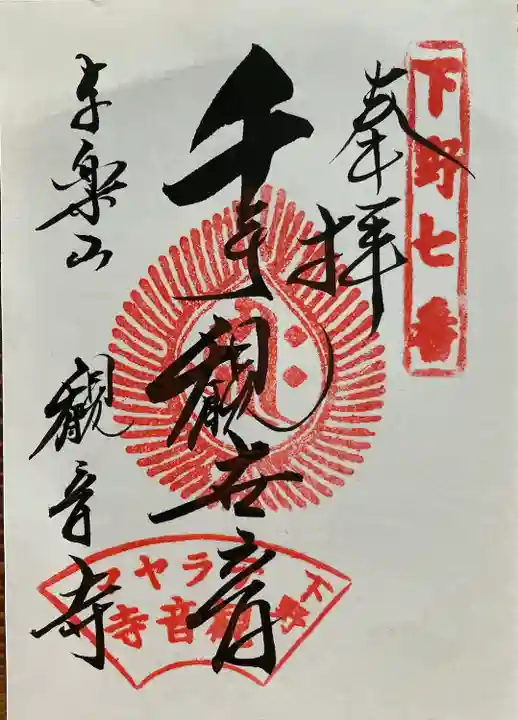 下野七番
奉拝
千手観世音
与楽山
観音寺
下野
観音寺